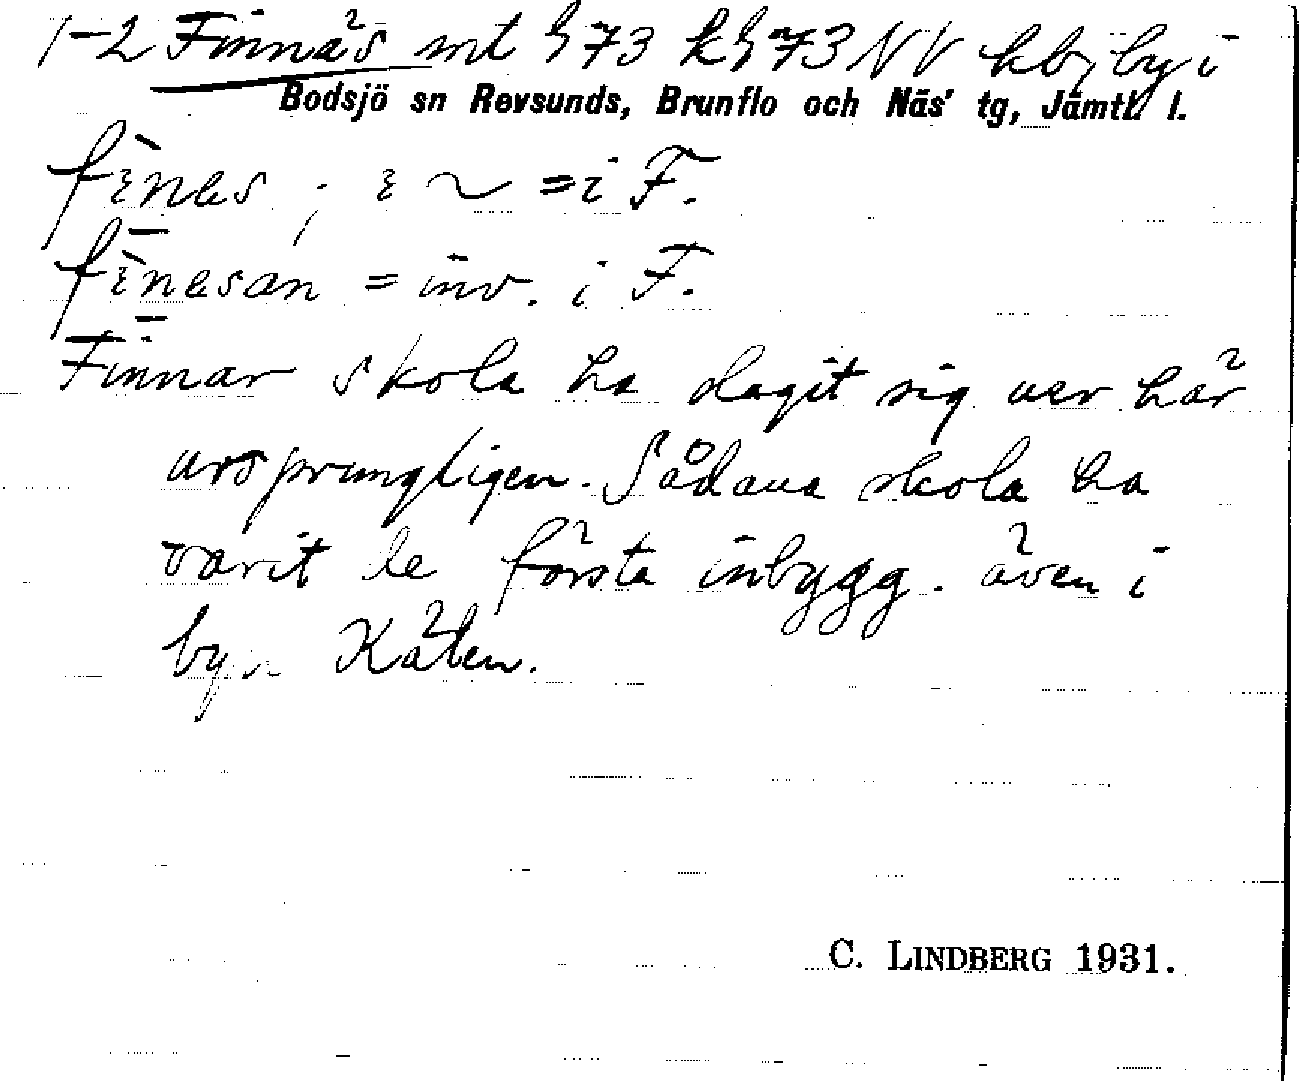 1-2 Finnäs mt § 73 k § 73 NV kbj by i
Bodsjö sn Revsunds, Brunflo och Näs' tg, Jämtl. l.
= i F.
= inv. i F.
Finnar skola ha slagit sig ner här
ursprungligen. Sådana skola ha
varit de första inbygg. även i
byn Kälen.
C. LINDBERG 1931.